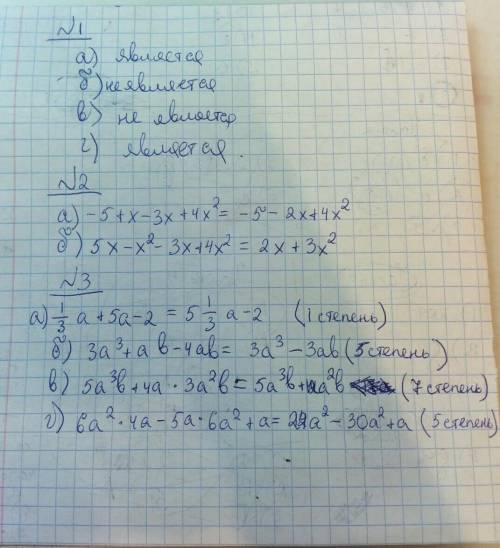 №1
а) является
б) не является
в) не является
г) является.
№2
а) -5+x-3x+4x²= -5-2x+4x²
б) 5x-x²-3x+4x² = 2x+3x²
№3
а) 1/3 a+5a-2 = 5 1/3 a-2 (1 степень)
б) 3a³+ab-4ab= 3a³-3ab (5 степень)
в) 5a³b+4a·3a²b= 5a³b+ a²b (7 степень)
г) 6a²·4a-5a·6a²+a= a²-30a²+a (5 степень)